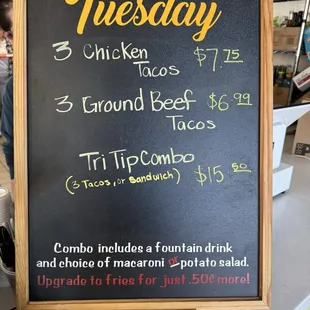 Tuesday
3 Chicken $7.75
Tacos
3 Ground Beef $6.99
Tacos
Tri Tip Combo
(3 Tacos, or Sandwich) $15.50
Combo includes a fountain drink
and choice of macaroni or potato salad.
Upgrade to fries for just .50¢ more!